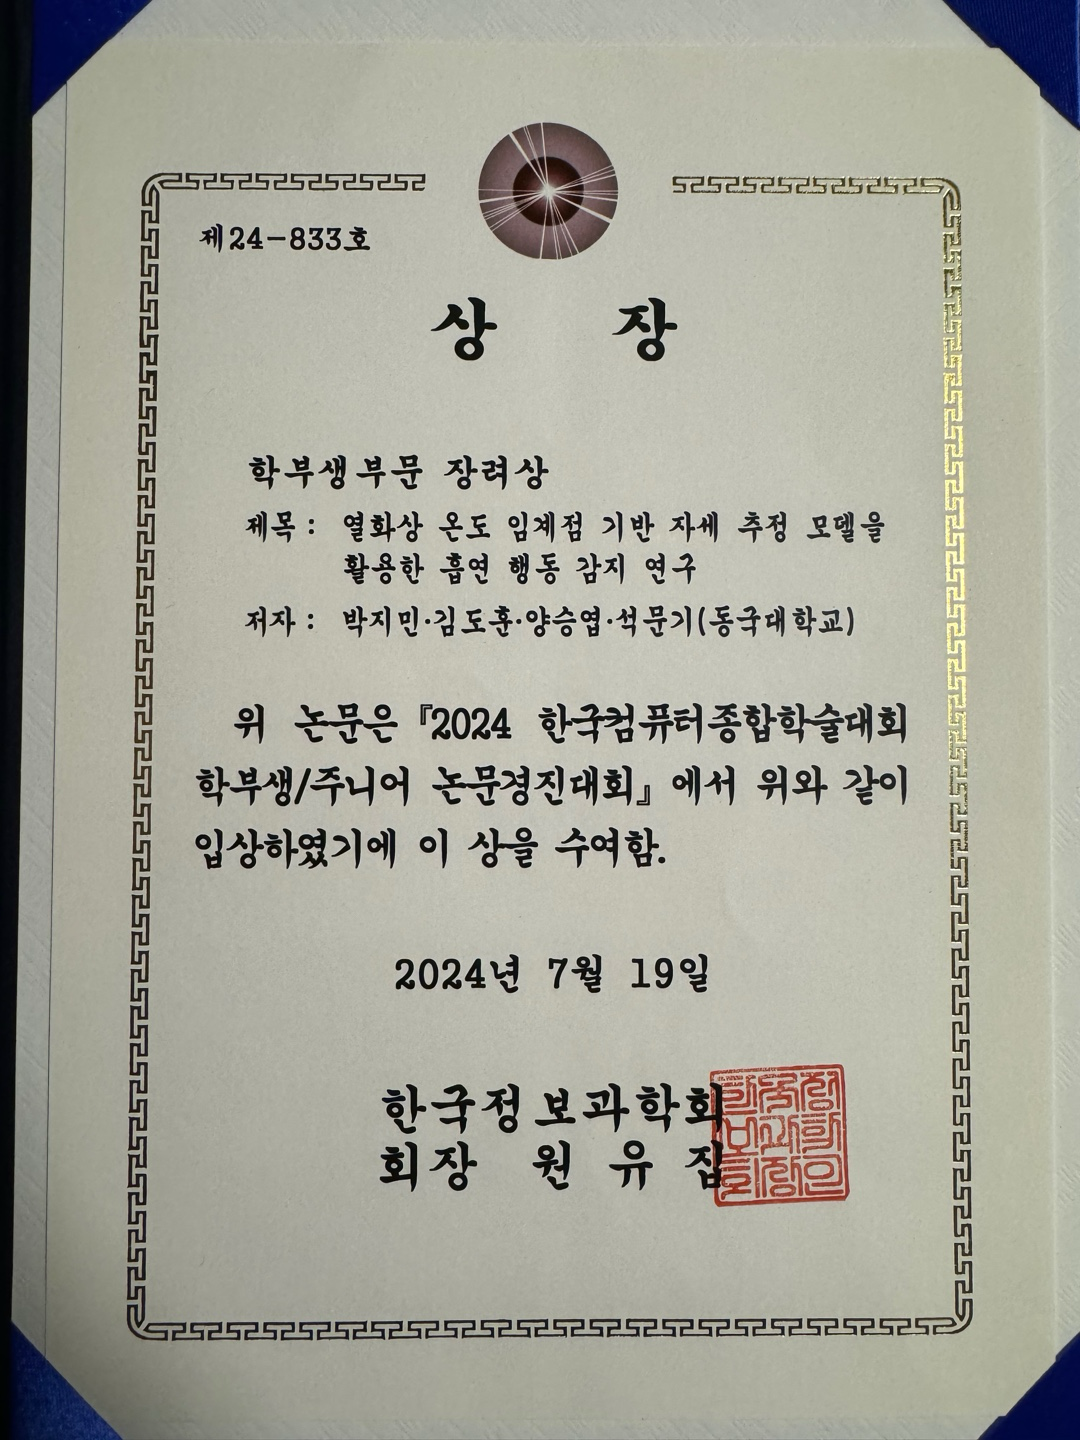 제24-833호
상 장
학부생부문 장려상
제목 : 열화상 온도 임계점 기반 자세 추정 모델을
활용한 흡연 행동 감지 연구
저자 : 박지민·김도훈·양승엽·석문기(동국대학교)
위 논문은 『2024 한국컴퓨터종합학술대회
학부생/주니어 논문경진대회』에서 위와 같이
입상하였기에 이 상을 수여함.
2024년 7월 19일
한국정보과학회
회장 원유집
한국정
보과학
회장인